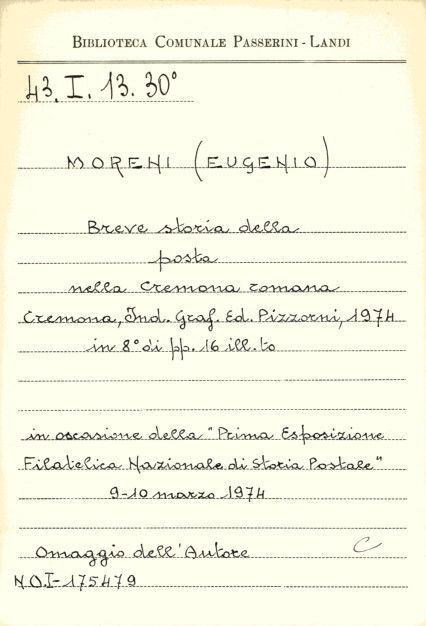 BIBLIOTECA COMUNALE PASSERINI - LANDI
43. I. 13. 30°
MORENI (EUGENIO)
Breve storia della
posta
nella Cremona romana
Cremona, Ind. Graf. Ed. Pizzorni, 1974
in 8° di pp. 16 ill.to
in occasione della "Prima Esposizione
Filatelica Nazionale di Storia Postale"
9-10 marzo 1974
Omaggio dell'Autore C
N.O.I- 175479